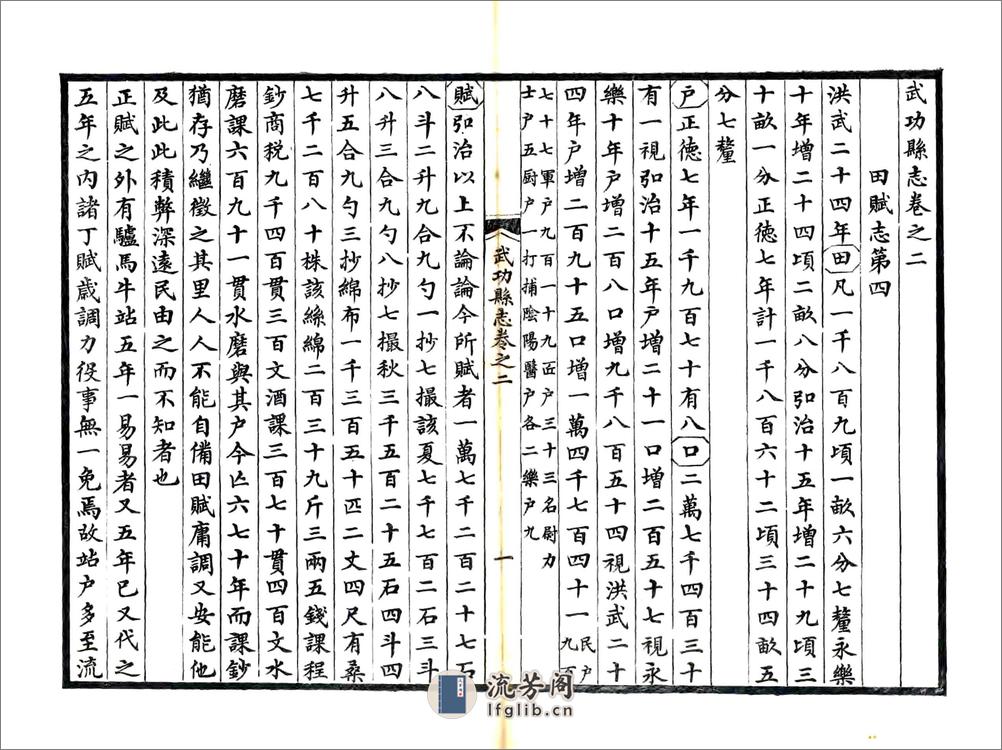 武功縣志卷之二
田賦志第四
洪武二十四年田凡一千八百九頃一畝六分七釐永樂
十年增二十四頃二畝八分弘治十五年增二十九頃三
十畝一分正德七年計一千八百六十二頃三十四畝五
分七釐
戶正德七年一千九百七十有八口二萬七千四百三十
有一視弘治十五年戶增二十一口增二百五十七視永
樂十年戶增二百八口增九千八百五十四視洪武二十
四年戶增二百九十五口增一萬四千七百四十一民戶九百
七十七軍戶九百一十九匠戶三十三名尉力
士戶五厨戶一打捕陰陽醫戶各二樂戶九
武功縣志卷之二
一
賦弘治以上不論論今所賦者一萬七千二百二十七石
八斗二升九合九勺一抄七撮該夏七千七百二石三斗
八升三合九勺八抄七撮秋三千五百二十五石四斗四
升五合九勺三抄綿布一千三百五十匹二丈四尺有桑
七千二百八十株該絲綿二百三十九斤三兩五錢課程
鈔商稅九千四百貫三百文酒課三百七十貫四百文水
磨課六百九十一貫水磨與其戶今亾六七十年而課鈔
猶存乃繼徵之其里人人不能自備田賦庸調又安能他
及此此積弊深遠民由之而不知者也
正賦之外有驢馬牛站五年一易易者又五年已又代之
五年之內諸丁賦歲調力役事無一免焉故站戶多至流
流芳阁
lfglib.cn